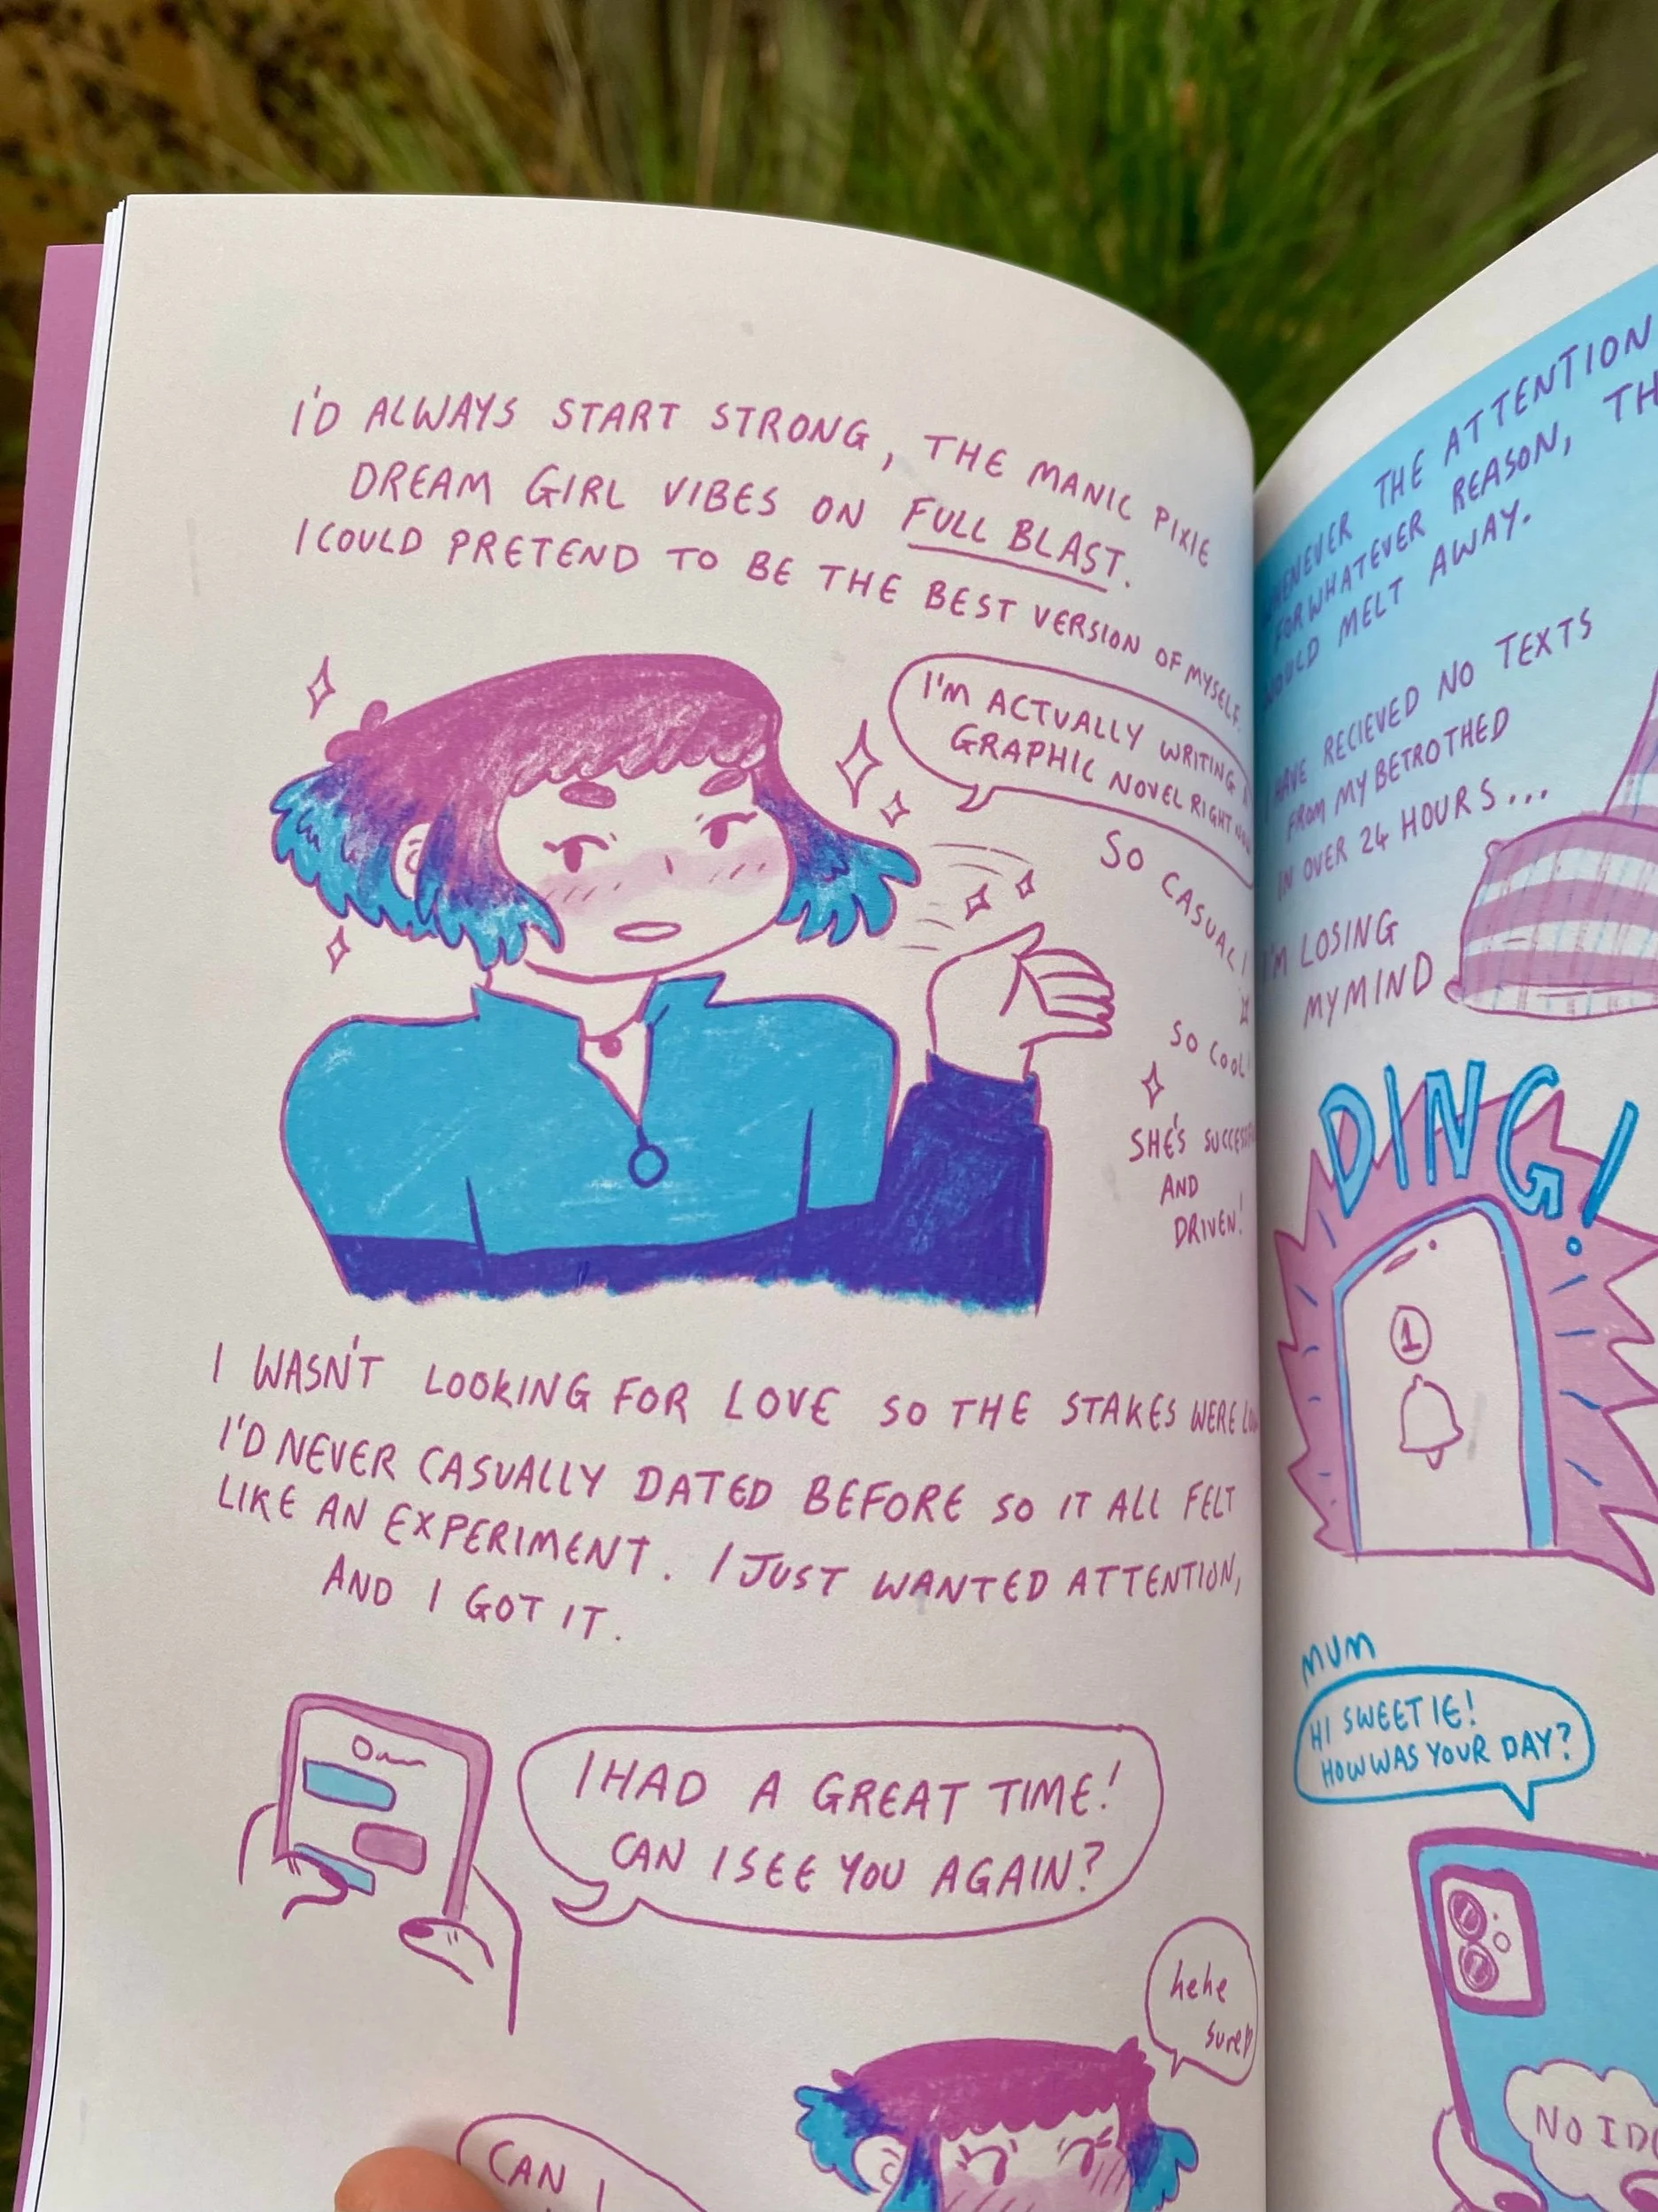 I'D ALWAYS START STRONG, THE MANIC PIXIE
DREAM GIRL VIBES ON FULL BLAST.
I COULD PRETEND TO BE THE BEST VERSION OF MYSELF.
I'M ACTUALLY WRITING
GRAPHIC NOVEL RIGHT
SO CASUAL!
SO COOL!
SHE'S
AND
DRIVEN!
I WASN'T LOOKING FOR LOVE SO THE STAKES WERE
I'D NEVER CASUALLY DATED BEFORE SO IT ALL FELT
LIKE AN EXPERIMENT. I JUST WANTED ATTENTION,
AND I GOT IT.
I HAD A GREAT TIME!
CAN I SEE YOU AGAIN?
hehe
sure
CAN I
THE ATTENTION
FOR WHATEVER REASON,
MELT AWAY.
RECIEVED NO TEXTS
FROM MY BETROTHED
IN OVER 24 HOURS...
I'M LOSING
MY MIND
DING!
1
MUM
HI SWEETIE!
HOW WAS YOUR DAY?
NO